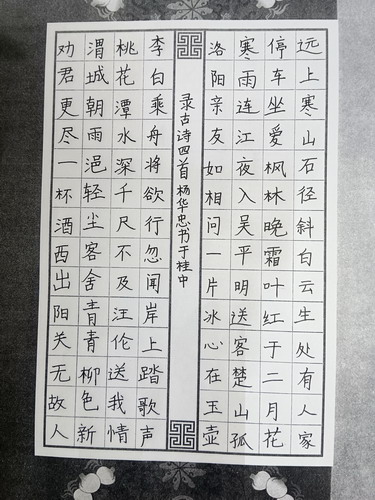 远上寒山石径斜白云生处有人家
停车坐爱枫林晚霜叶红于二月花
寒雨连江夜入吴平明送客楚山孤
洛阳亲友如相问一片冰心在玉壶
录古诗四首 杨华忠书于桂中
李白乘舟将欲行忽闻岸上踏歌声
桃花潭水深千尺不及汪伦送我情
渭城朝雨浥轻尘客舍青青柳色新
劝君更尽一杯酒西出阳关无故人